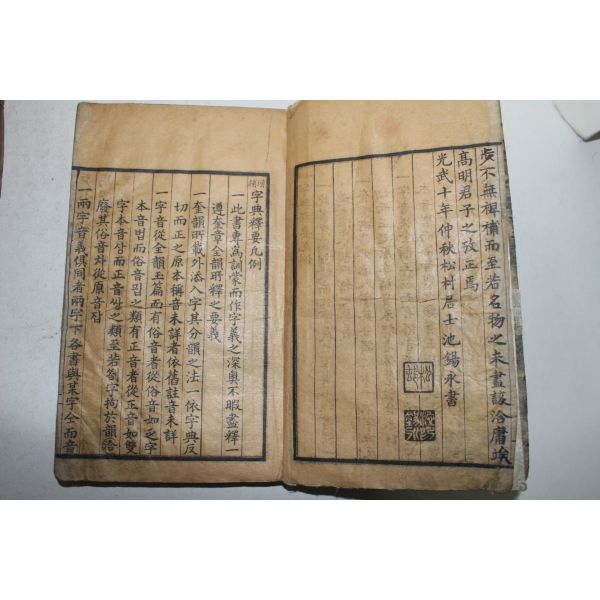 步不無裨補而至若名物之未盡該洽庸竢
高明君子之攷正焉
光武十年仲秋松村居士池錫永書
增補 字典釋要凡例
一此書專爲訓蒙而作字義之深奧不暇盡釋一
遵奎章全韻所釋之要義
一奎韻所載外添入字其分韻之法一依字典反
切而正之原本稱音未詳者依舊註音未詳
一字音從全韻玉篇而有俗音者從俗音如乏字
本音법而俗音핍之類有正音者從正音如雙
字本音상而正音쌍之類至若劄字拘於韻諧
廢其俗音차從原音잡
一兩字音義俱同者兩字下各書與某字仝而音